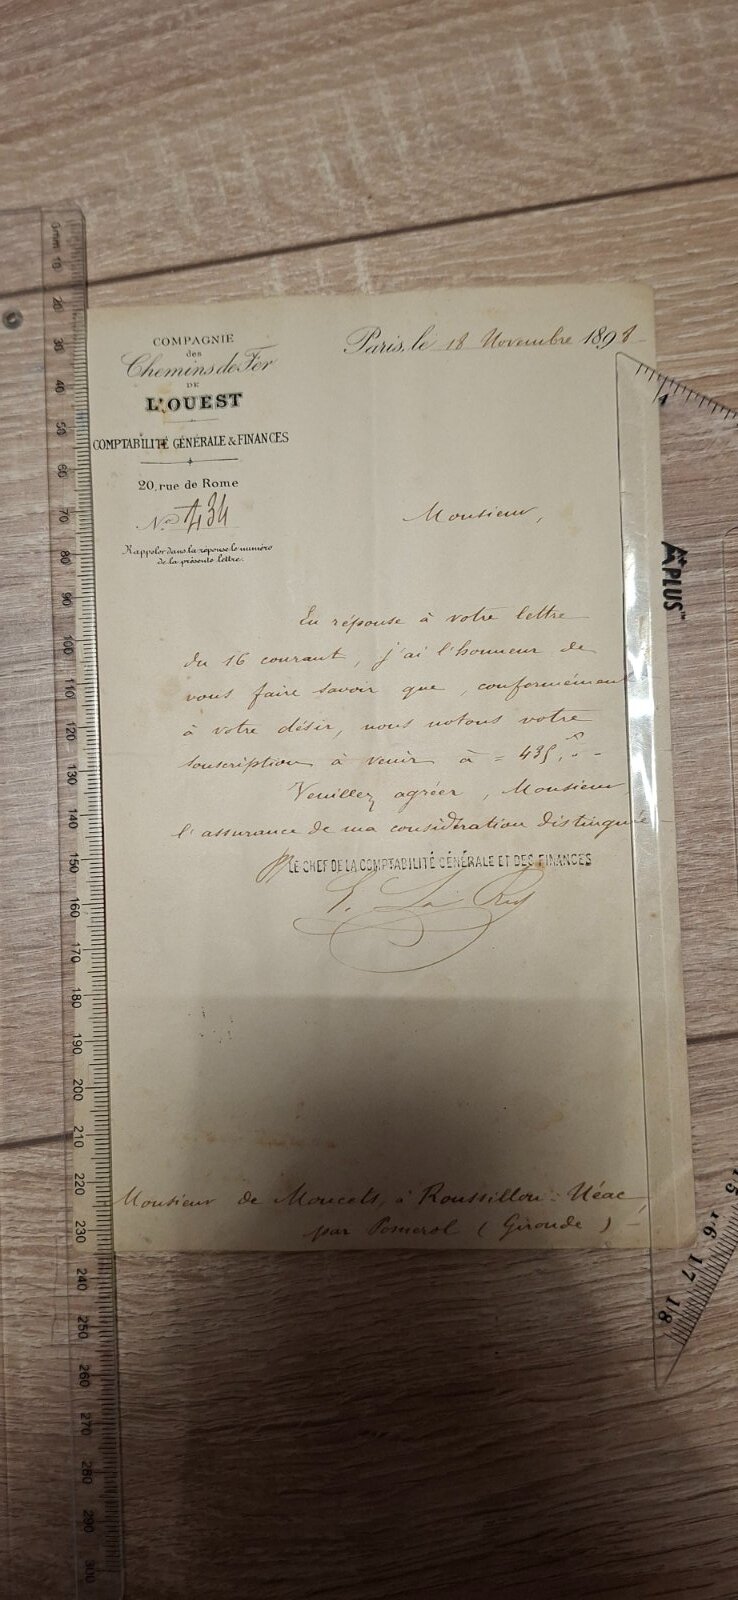 COMPAGNIE
des
Chemins de Fer
DE
L'OUEST
COMPTABILITÉ GÉNÉRALE & FINANCES
20, rue de Rome
No 434
Rappeler dans la réponse le numéro
de la présente lettre.
Paris, le 18 Novembre 1898
Monsieur,
En réponse à votre lettre
du 16 courant, j'ai l'honneur de
vous faire savoir que, conformément
à votre désir, nous notons votre
souscription à venir à = 435,
Veuillez agréer, Monsieur
l'assurance de ma considération distinguée
LE CHEF DE LA COMPTABILITÉ GÉNÉRALE ET DES FINANCES
Monsieur de Moucets, à Roussillon-Néac
par Pomerol (Gironde)
0mm 10 20 30 40 50 60 70 80 90 100 110 120 130 140 150 160 170 180 190 200 210 220 230 240 250 260 270 280 290 300
A+PLUS™
15 16 17 18